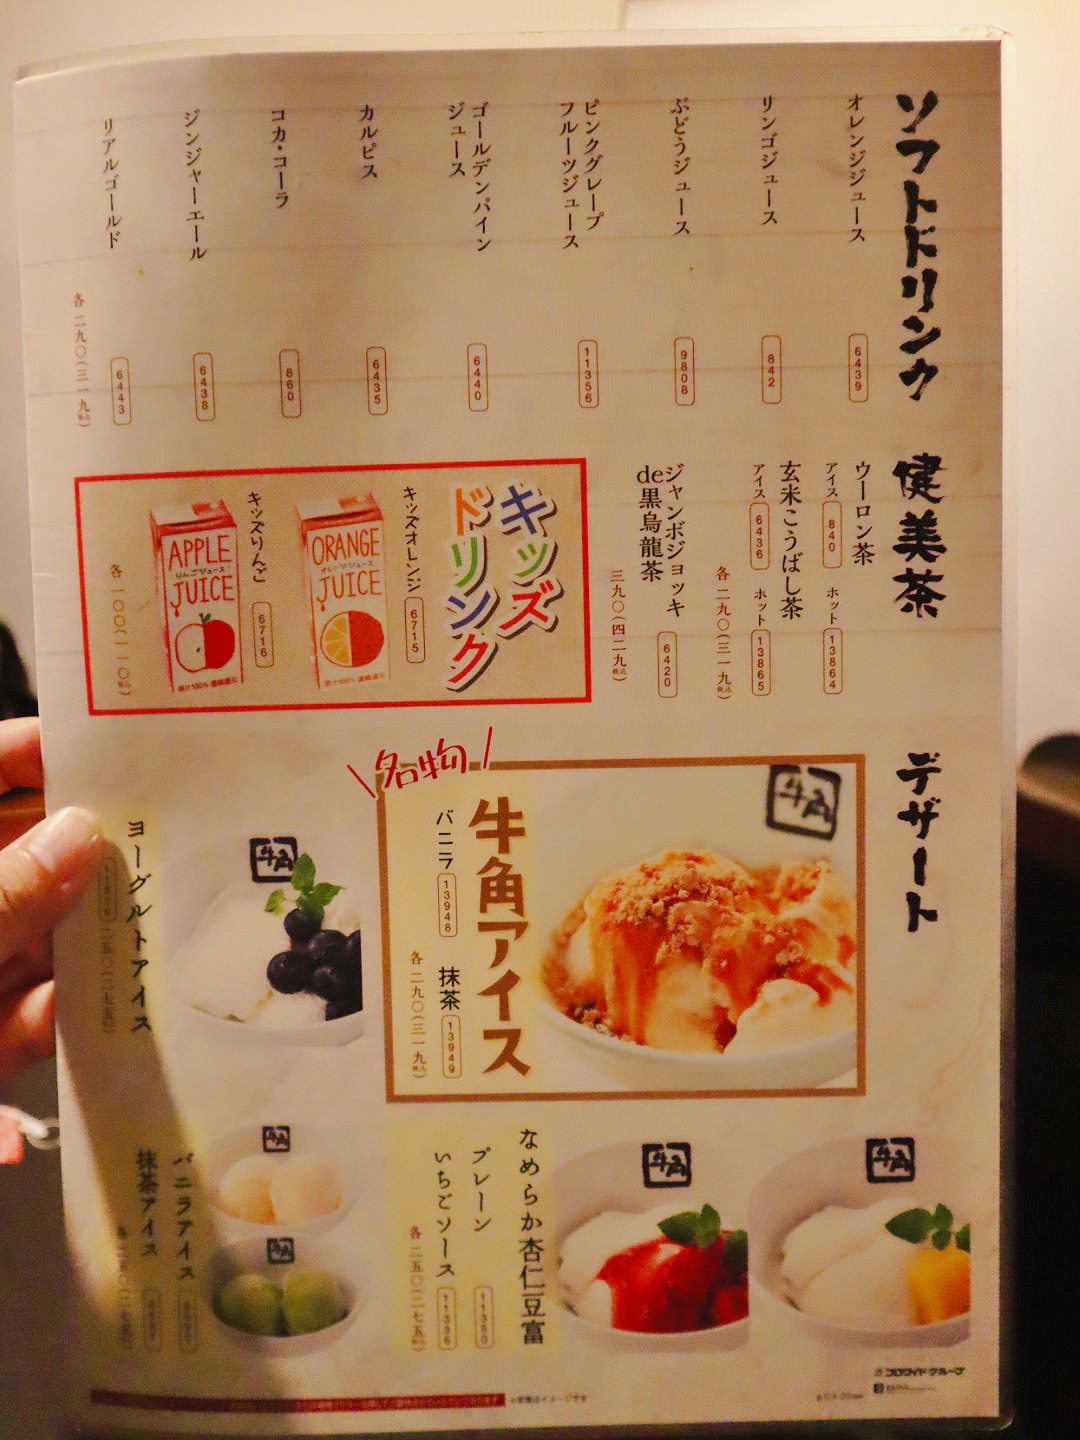 ソフトドリンク
オレンジジュース
6439
リンゴジュース
842
ぶどうジュース
9808
ピンクグレープ
フルーツジュース
11356
ゴールデンパイン
ジュース
6440
カルピス
6435
コカ・コーラ
860
ジンジャーエール
6438
リアルゴールド
6443
各二九〇(三一九税込)
健美茶
ウーロン茶
アイス 840 ホット 13864
玄米こうばし茶
アイス 6436 ホット 13865
各二九〇(三一九税込)
ジャンボジョッキ
de黒烏龍茶
6420
三九〇(四二九税込)
キッズ
ドリンク
キッズオレンジ
6715
ORANGE
オレンジジュース
JUICE
果汁100% 濃縮還元
キッズりんご
6716
APPLE
りんごジュース
JUICE
果汁100% 濃縮還元
各一〇〇(一一〇税込)
デザート
名物
牛角
牛角アイス
バニラ 13948 抹茶 13949
各二九〇(三一九税込)
牛角
ヨーグルトアイス
二五〇(二七五税込)
牛角
牛角
なめらか杏仁豆富
プレーン 11350
いちごソース 11336
各二五〇(二七五税込)
牛角
牛角
バニラアイス
抹茶アイス
各二五〇(二七五税込)
コロワイドグループ
※写真はイメージです